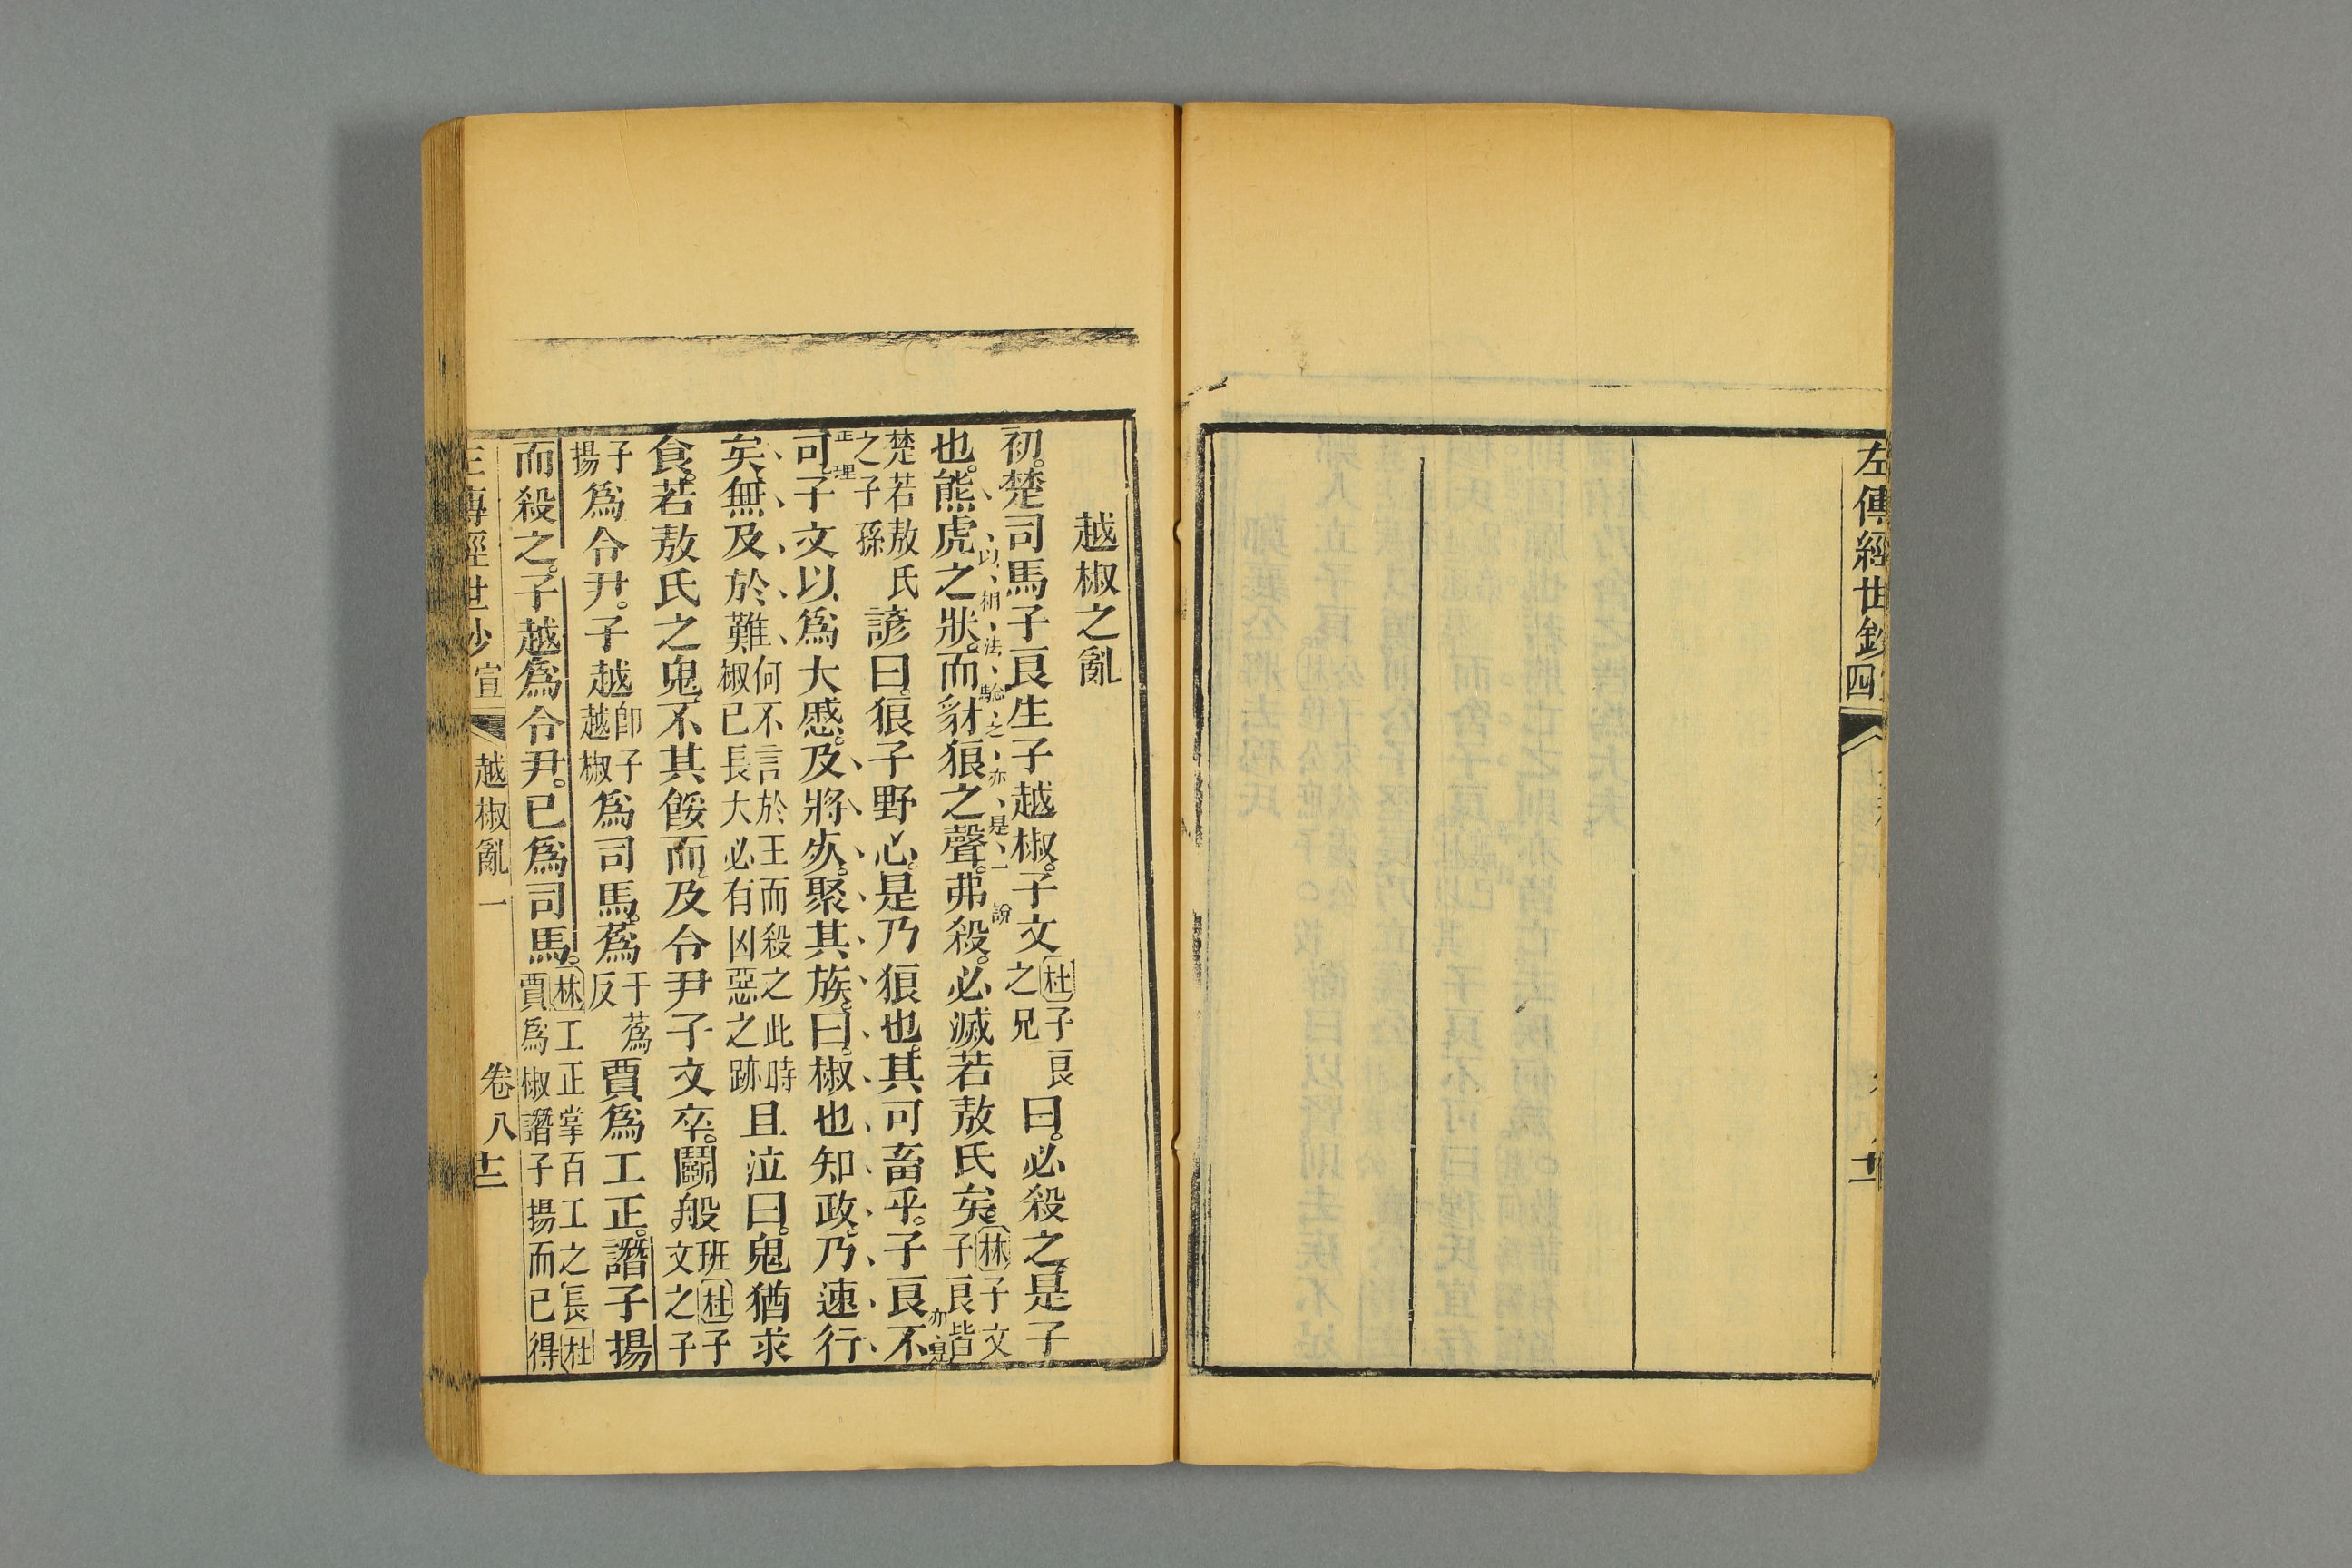 左傳經世鈔
四
十一
越椒之亂
初。楚司馬子良生子越椒。子文杜子良之兄曰。必殺之。是子
也。熊虎之狀。而豺狼之聲。弗殺。必滅若敖氏矣。林子文子良皆
以相法驗之亦是一說
楚若敖氏之子孫諺曰。狼子野心。是乃狼也。其可畜乎。子良不
亦是
正理
可。子文以爲大慼。及將死。聚其族。曰。椒也知政。乃速行
矣。無及於難。何不言於王而殺之此時椒已長大必有凶惡之跡且泣曰。鬼猶求
食。若敖氏之鬼。不其餒而。及令尹子文卒。鬭般班杜子文之子子
揚爲令尹。子越卽子越椒爲司馬。蒍于蒍反賈爲工正。譖子揚
而殺之。子越爲令尹。已爲司馬。林工正掌百工之長杜賈爲椒譖子揚而已得
左傳經世鈔
宣
越椒亂一
卷八
十二